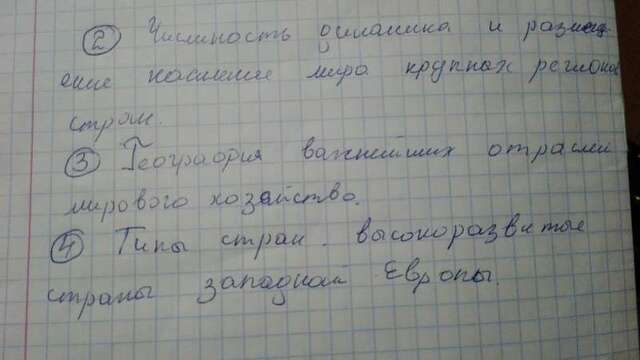 ② Численность динамика и размещ
ение население мира крупных регионов
стран.
③ География важнейших отраслей
мирового хозяйство.
④ Типы стран. высокоразвитые
страны западной Европы.